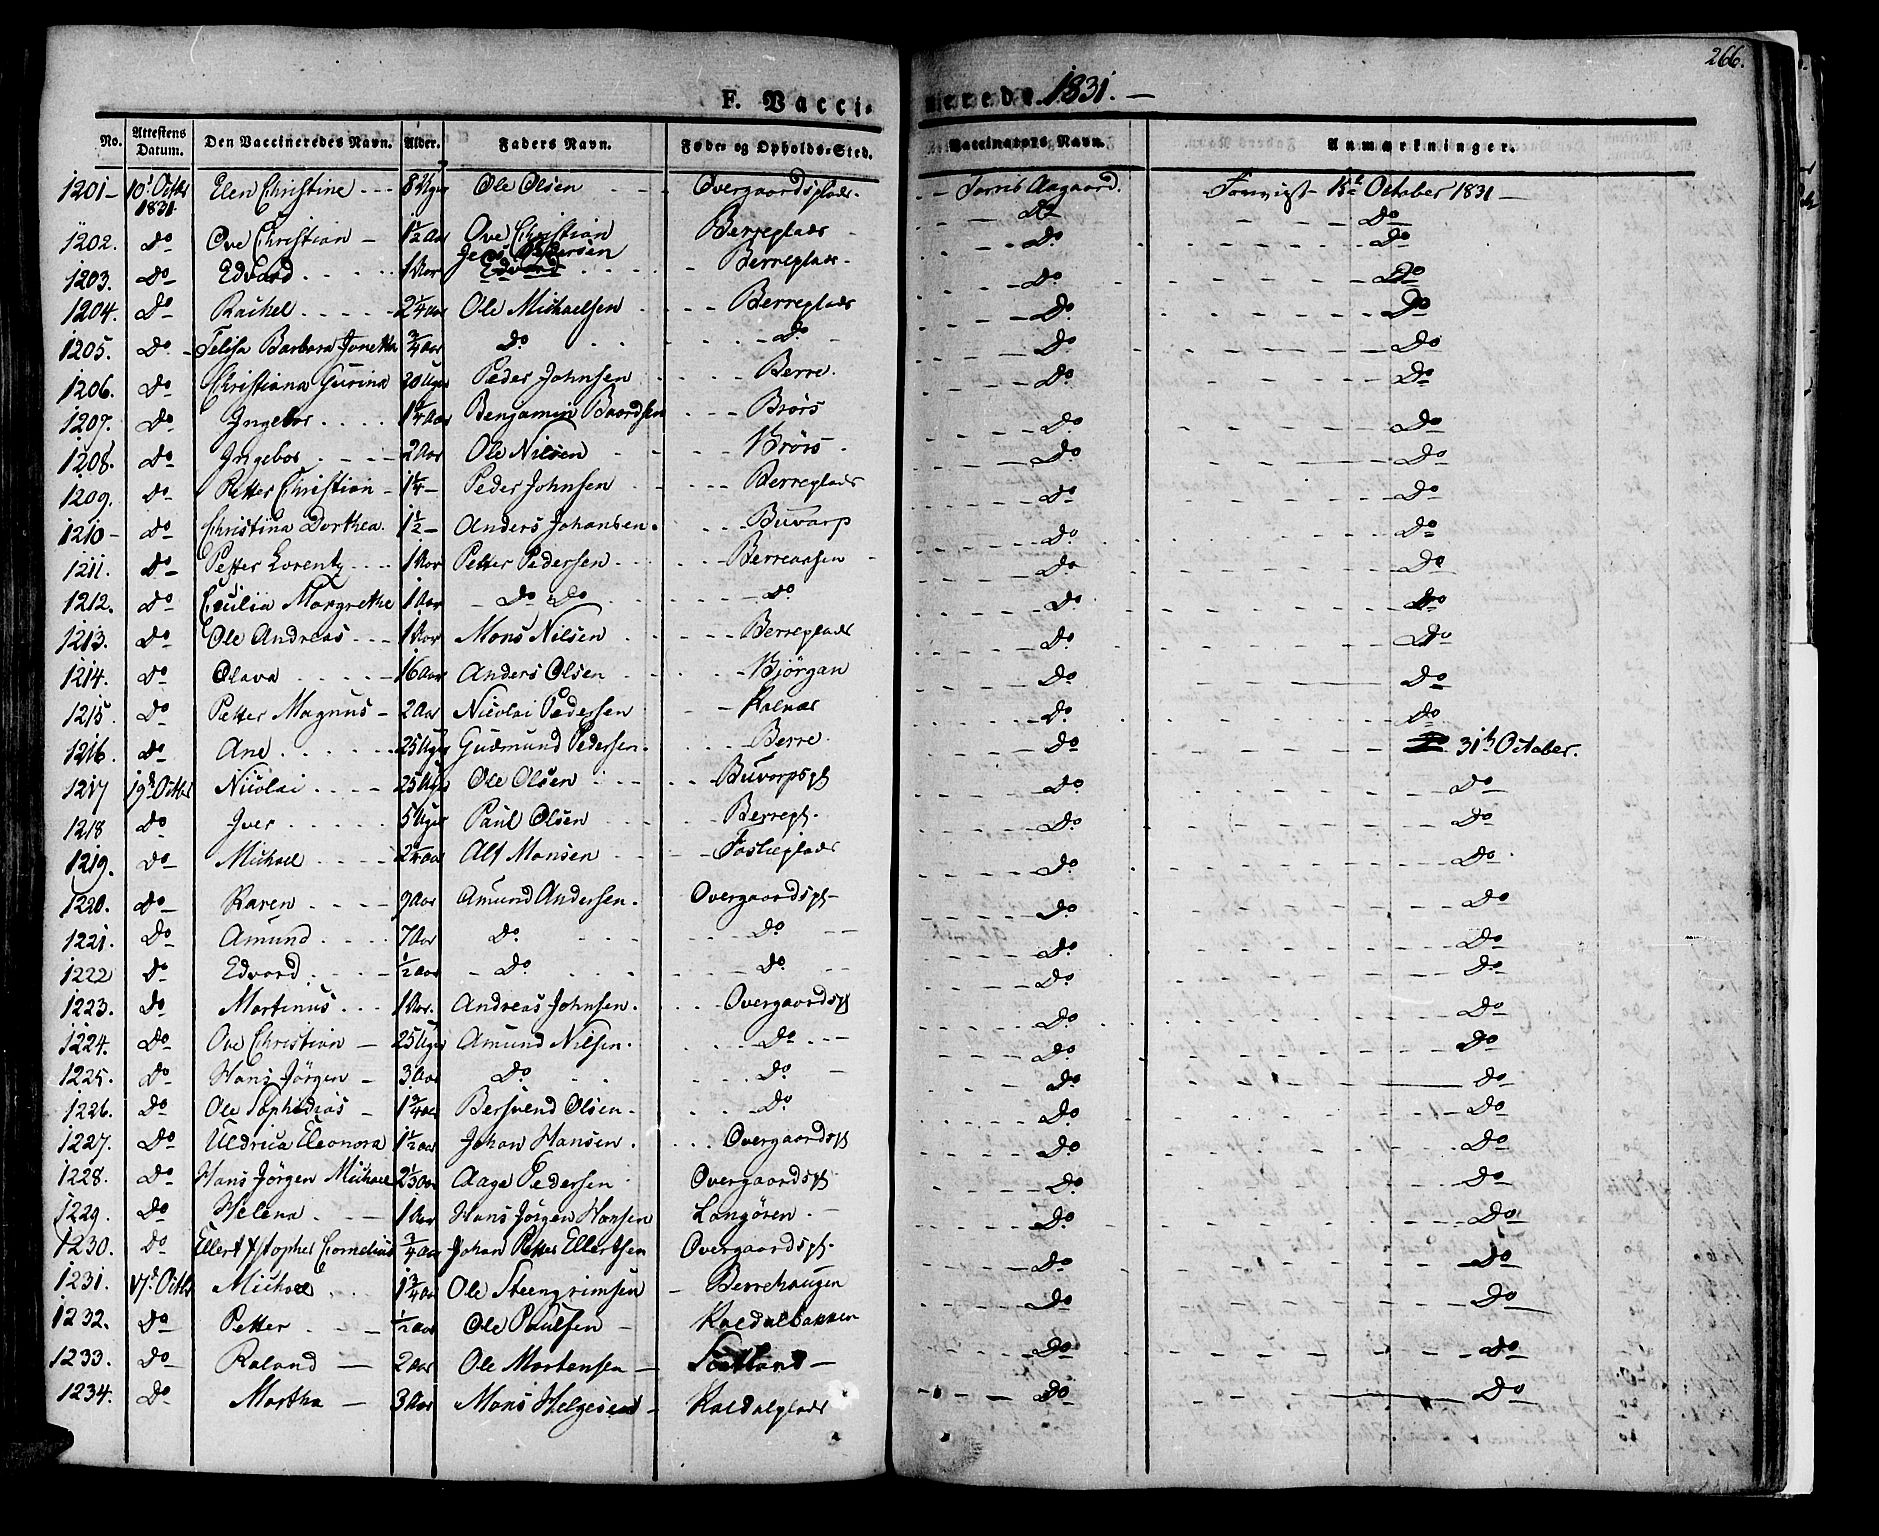 266.
F. Vaccinerede 1831.
No. Attestens Datum. Den Vaccineredes Navn. Alder. Faders Navn. Føde- og Opholds-Sted. Vaccinators Navn. Anmærkninger.
1201 10' Octbr 1831 Elen Christine 8 Uger Ole Olsen Overgaardsplads Torris Aagaard. Foreviist 15de October 1831
1202. Do Ove Christian 1½ Aar Ove Christian Berreplads Do Do
1203. Do Edvard 1 Aar Jens Pedersen Berreplads Do Do
1204. Do Rachel 2¼ Aar Ole Michaelsen Berreplads Do Do
1205. Do Barbara Jonetta ¾ Aar Do Do Do Do
1206. Do Christiana Gurina 20 Uger Peder Johnsen Berre. Do Do
1207. Do Ingebor 1¼ Aar Benjamin Baardsen Brørs Do Do
1208. Do Ingebor 2 Aar Ole Nilsen Brørs Do Do
1209. Do Petter Christian 1¼ Peder Johnsen Berreplads Do Do
1210 Do Christina Dorthea 1½ Anders Johansen. Buvarp Do Do
1211. Do Petter Lorentz 1 Aar Petter Pedersen Berreaasen Do Do
1212. Do Cecilia Margrethe 1 Aar Do Do Do Do Do
1213. Do Ole Andreas 1 Aar Mons Nilsen Berreplads Do Do
1214. Do Olava 16 Aar Anders Olsen Bjørgan Do Do
1215. Do Petter Magnus 2 Aar Nicolai Pedersen Kalnæs Do Do
1216. Do Ane 25 Uger Gudmund Pedersen. Berre. Do 31te October.
1217 19de Octbr Nicolai 25 Uger Ole Olsen Buvarpspl Do Do
1218 Do Iver 5 Uger Paul Olsen Berrepl. Do Do
1219. Do Michael 2¼ Aar Alf Monsen Foslieplads Do Do
1220. Do Karen 9 Aar Amund Andersen. Overgaardspl Do Do
1221. Do Amund 7 Aar Do. Do Do Do
1222 Do Edvard ½ Aar Do. Do. Do Do
1223. Do Martinus 1 Aar. Andreas Johnsen. Overgaardspl Do Do
1224. Do Ove Christian 25 Uger Amund Nilsen. Do Do Do
1225. Do Hans Jørgen 3 Aar Do Do Do Do
1226. Do Ole 1¾ Aar Bersvend Olsen Do Do Do
1227. Do Uldrica Eleonora 1½ Aar Johan Hansen. Overgaardspl Do Do
1228. Do Hans Jørgen Michael 2⅓ Aar Aage Pedersen Overgaardspl Do Do
1229. Do Helena 1 Aar Hans Jørgen Hansen Langøren Do Do
1230. Do Ellert Cornelius ¾ Aar Johan Petter Ellertsen Overgaardspl. Do Do
1231. 17de Octbr Michael 1¾ Aar Ole Steengrimsen Berrehaugen Do Do
1232. Do Petter ½ Aar Ole Paulsen Kaldalbakken Do Do
1233. Do Roland 2 Aar Ole Mortensen Do Do
1234. Do Martha 3 Aar Mons Helgesen Kaldalplads Do Do